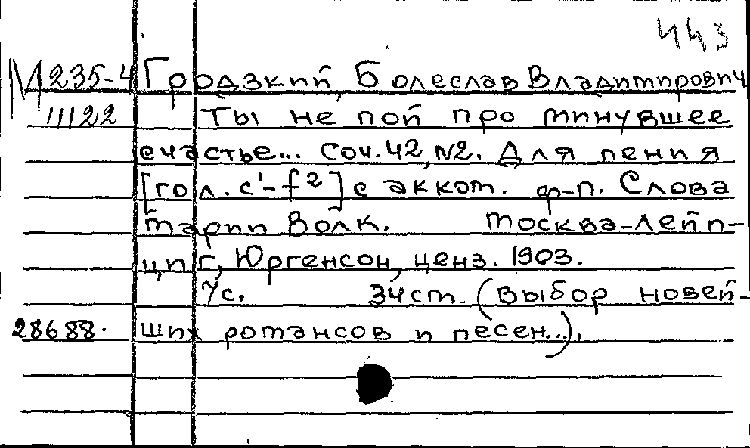 443
М 235-4 Гродзкий, Болеслав Владимирович
11122 Ты не пой про минувшее
счастье... Соч. 42, №2. Для пения
[гол. c'-f²] с акком. ф-п. Слова
Марии Волк. Москва-Лейп-
циг, Юргенсон, ценз. 1903.
7с. 34см. (Выбор новей-
28688. ших романсов и песен...).